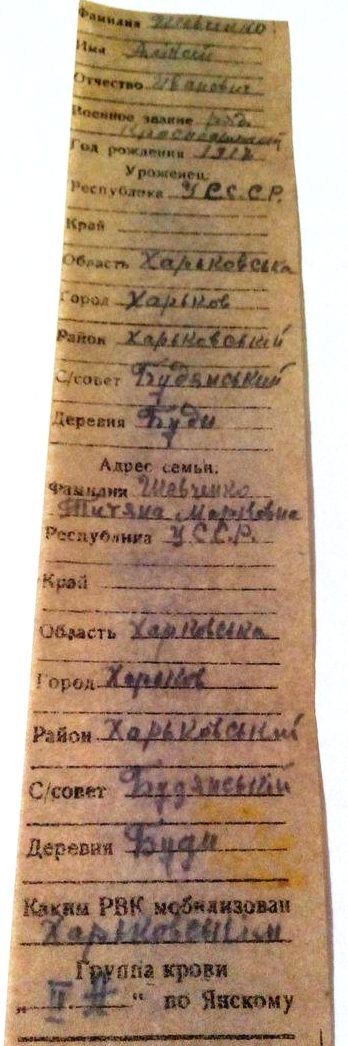 Фамилия Шевченко
Имя Алексей
Отчество Иванович
Военное звание ряд.
Красноармеец
Год рождения 1912
Уроженец:
Республика У С С. С Р.
Край
Область Харьковська
Город Харьков
Район Харьковський
С/совет Будянський
Деревня Буди
Адрес семьи:
Фамилия Шевченко
Татяна Марковна
Республика У С С. Р.
Край
Область Харковська
Город Харьков
Район Харьковський
С/совет Будянський
Деревня Буди
Каким РВК мобилизован
Харьковським
Группа крови
„ II " по Янскому